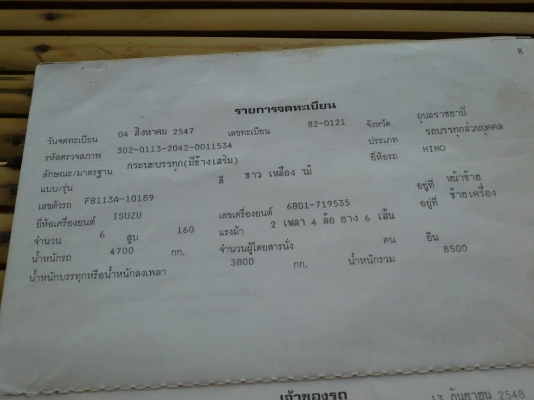 รายการจดทะเบียน
วันจดทะเบียน 04 สิงหาคม 2547 เลขทะเบียน 82-0121 จังหวัด อุบลราชธานี
รหัสตรวจสภาพ 302-0113-2042-0011534 ประเภท รถบรรทุกส่วนบุคคล
ลักษณะ/มาตรฐาน กระบะบรรทุก(มีข้างเสริม) ยี่ห้อรถ HINO
แบบ/รุ่น สี ขาว เหลือง
เลขตัวรถ FB113A-10189 อยู่ที่ หน้าซ้าย
ยี่ห้อเครื่องยนต์ ISUZU เลขเครื่องยนต์ 6BD1-719535 อยู่ที่ ซ้ายเครื่อง
จำนวน 6 สูบ 160 แรงม้า 2 เพลา 4 ล้อ ยาง 6 เส้น
น้ำหนักรถ 4700 กก. จำนวนผู้โดยสารนั่ง คน ยืน
น้ำหนักบรรทุกหรือน้ำหนักลงเพลา 3800 กก. น้ำหนักรวม 8500
เจ้าของรถ
13 กันยายน 2548